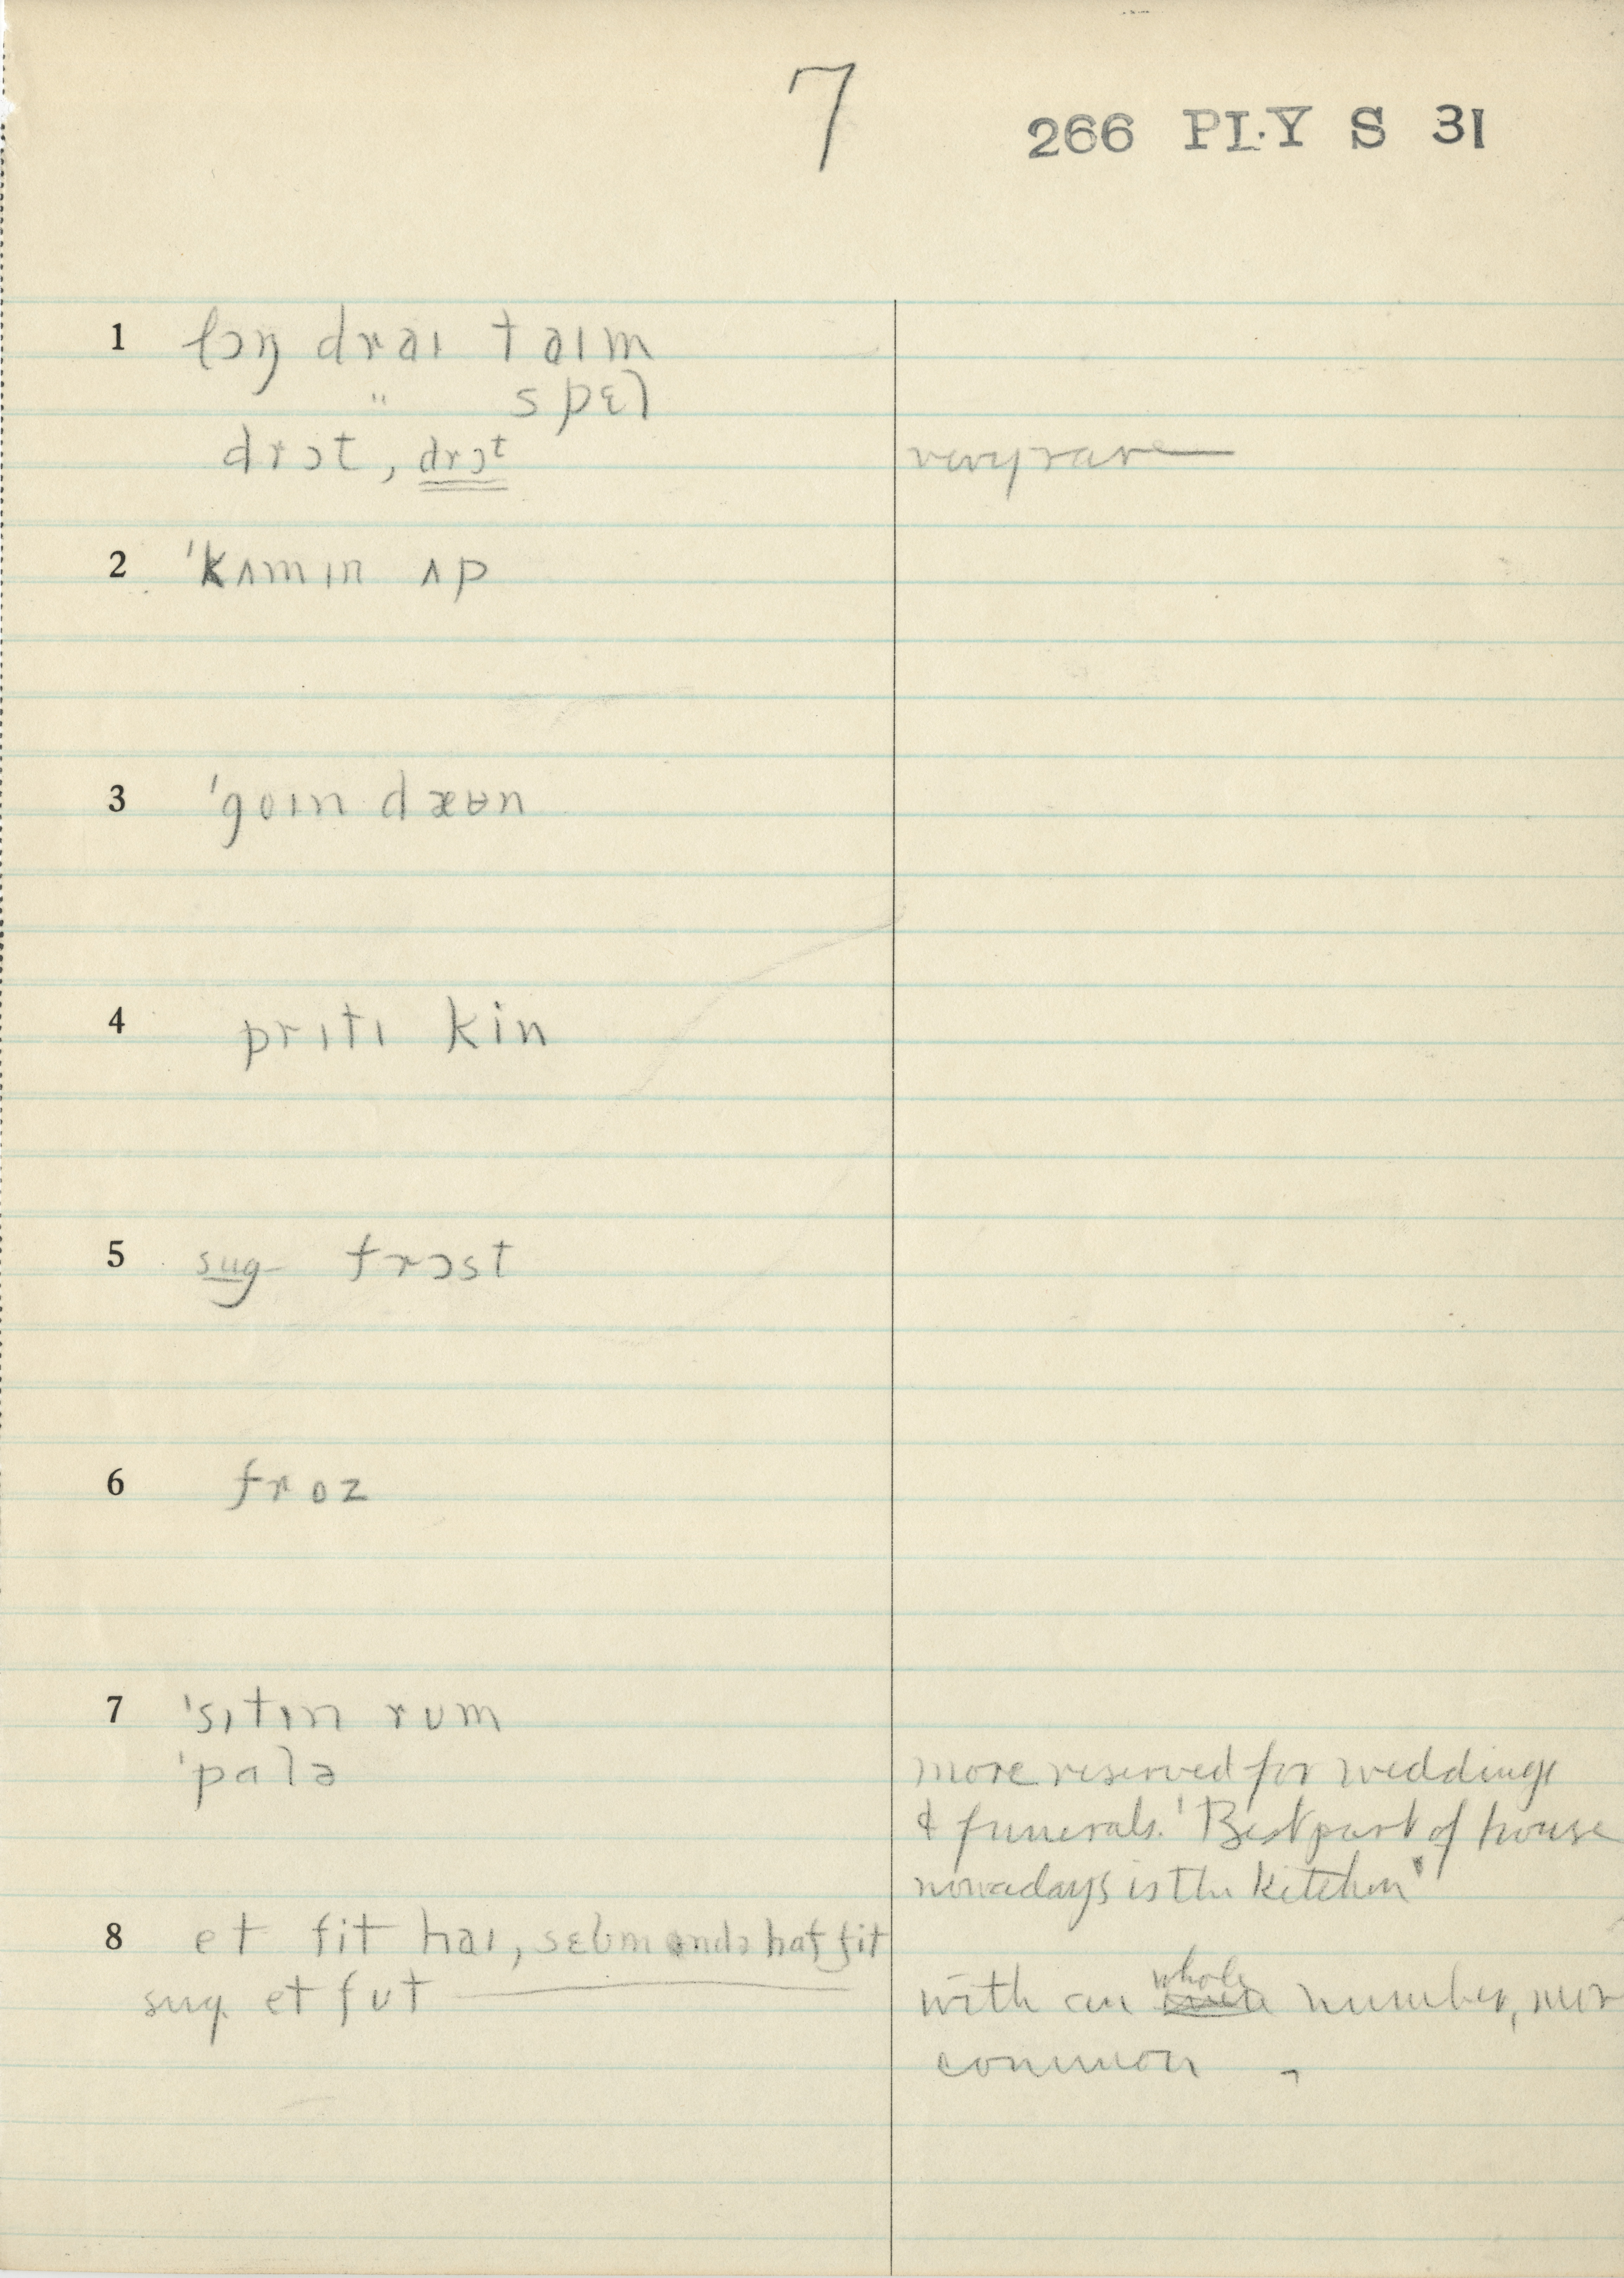 7
266 PLY S 31
1 lɔŋ draɪ taɪm
" spɛl
drɔt, drɔt very rare
2 'kʌmɪn ʌp
3 'goɪn dæʉn
4 prɪtɪ kin
5 sug frɔst
6 froz
7 'sɪtɪn rʊm
'palə more reserved for weddings
& funerals. 'Best part of house
nowadays is the kitchen'
8 et fit haɪ, sɛbm haf fit
sug. et fʊt with an whole number, mor
common